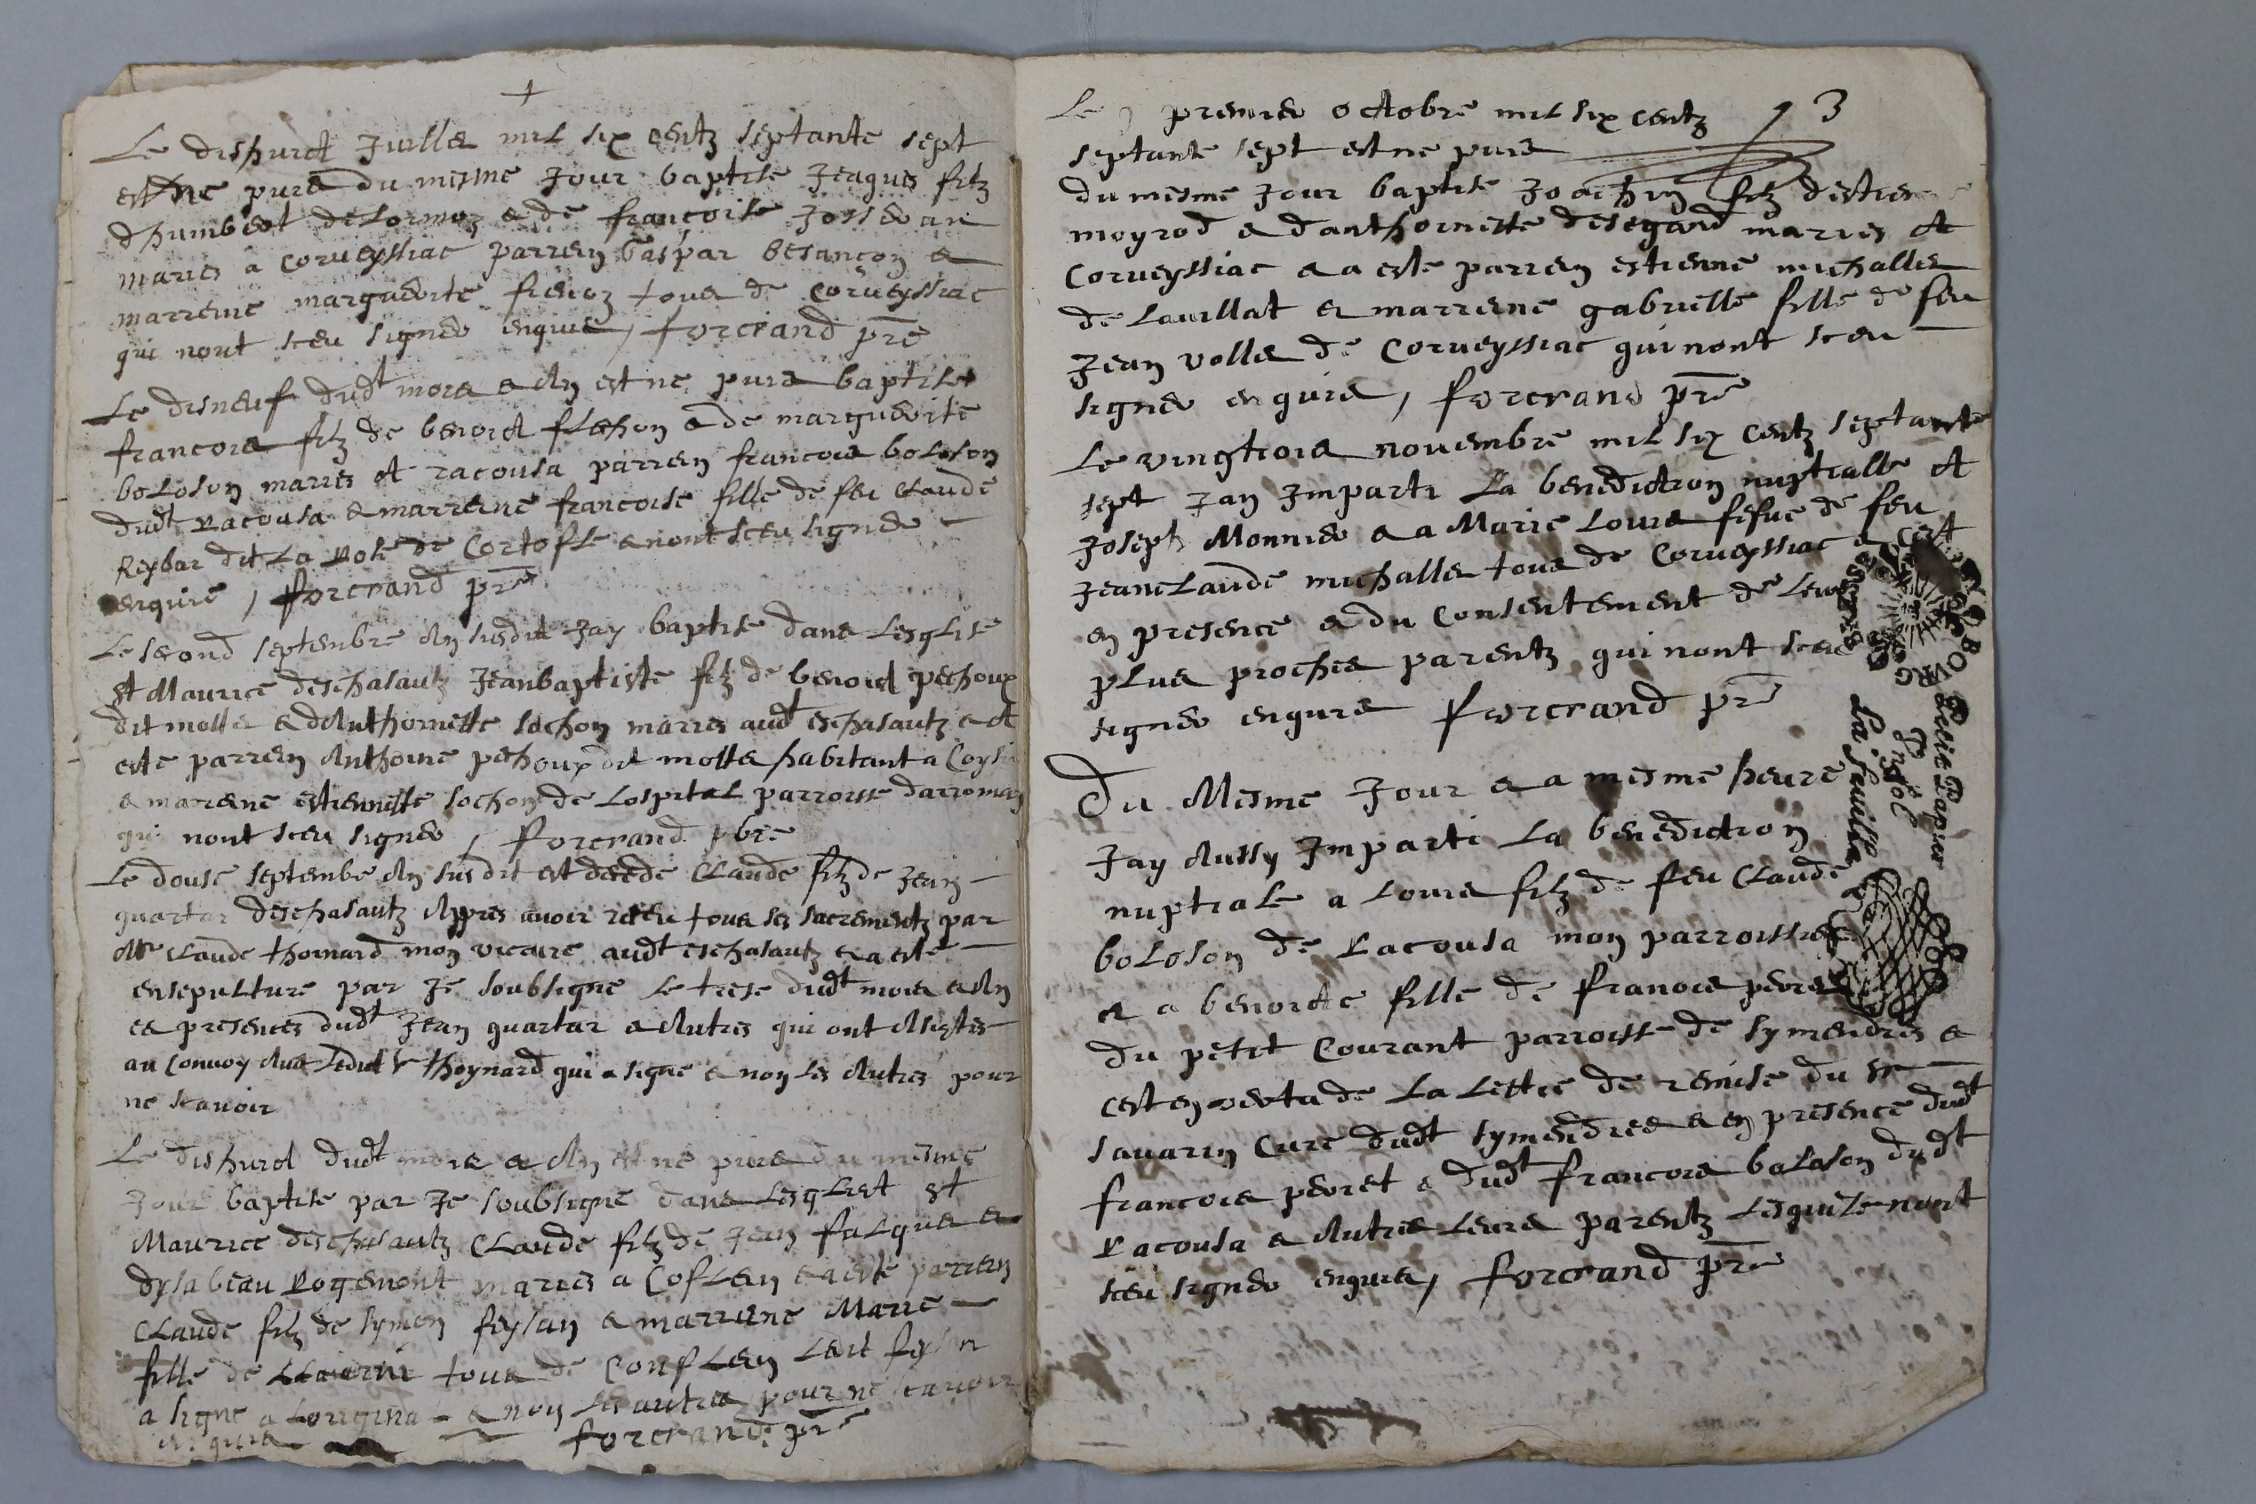 Le dishuict Juillet mil six centz septante sept
est ne puis du mesme Jour baptise Jeaques filz
dhumbert delormoz et de francoise Josseran
maries a Corveyssiac parrein Gaspar besançon et
marreine marguerite tous de Corveyssiac
qui nont sceu signer enquis / forcrand pre
Le disneuf dudt mois et An est ne puis baptise
francois filz de benoict flechon et de marguerite
boloson maries A racousa parrein francois boloson
dudt Racousa et marreine francoise fille de feu Claude
Reybar dit La Rose de Cortofle et nont sceu signer
enquis / forcrand pre
Le second septembre An susdit Jay baptise dans Lesglise
st Maurice deschasautz Jeanbaptiste filz de benoict pechoux
dit mollie et dAnthoinette sochon maries audt eschasautz et A
este parrein Anthoine pechoux dit mollie habitant a
et mareine estiennette sochon de Lospital parroisse
qui nont sceu signer / forcrand pbre
Le douse septembre An susdit est decede Claude filz de Jean
quartar deschasautz Appres avoir receu tous ses sacrementz par
Mre Claude thoinard mon vicaire audt eschasautz et a este
ensepulture par Je soubsigne Le trese dudt mois et An
es presences dudt Jean quartar et Autres qui ont Asistes
au Convoy Avec Ledict Sr thoynard qui a signe et non Les Autres pour
ne scavoir
Le dishuict dudt mois et An est ne puis du mesme
Jour baptise par Je soubsigne dans Lesglise st
Maurice deschasautz Claude filz de Jean falquet et
dysabeau Rogemont maries a Coflen et a este parrein
Claude filz de symon feysan et marreine Marie
fille de tous de Conflen
a signe a Loriginal et non Les autres pour ne scavoir
enquis forcrand pre
Le premier octobre mil six centz 3
septante sept est ne puis
du mesme Jour baptise Joachin filz
moyrod et danthoinette desegand maries A
Corveyssiac et a este parrein estienne michallet
de Lavillat et marreine gabrielle fille de feu
Jean vollet de Corveyssiac qui nont sceu
signer enquis / forcrand pre
Le vingtrois novembre mil six centz septante
sept Jay Imparti La benediction nuptialle A
Joseph Monnier et a Marie Louis fefue de feu
Jeanclaude michallet tous de Corveyssiac et cest
en presence et du Consentement de Leurs
plus proches parentz qui nont sceu
signer enquis forcrand pre
Du Mesme Jour et a mesme heure
Jay Aussy Imparti La benediction
nuptiale a Louis filz de feu Claude
boloson de Racousa mon parroissien
et a benoicte fille de francois peuret
du petit Courant parroisse de symendres et
cest en vertu de La Lettre de remise du sr
savarin Cure dudt symendres et en presence dudt
francois peuret et dudt francois boloson dudt
Racousa et Autres Leurs parentz Lesquelz nont
sceu signer enquis / forcrand pre
BOVRG
Petit Papier
La feuille